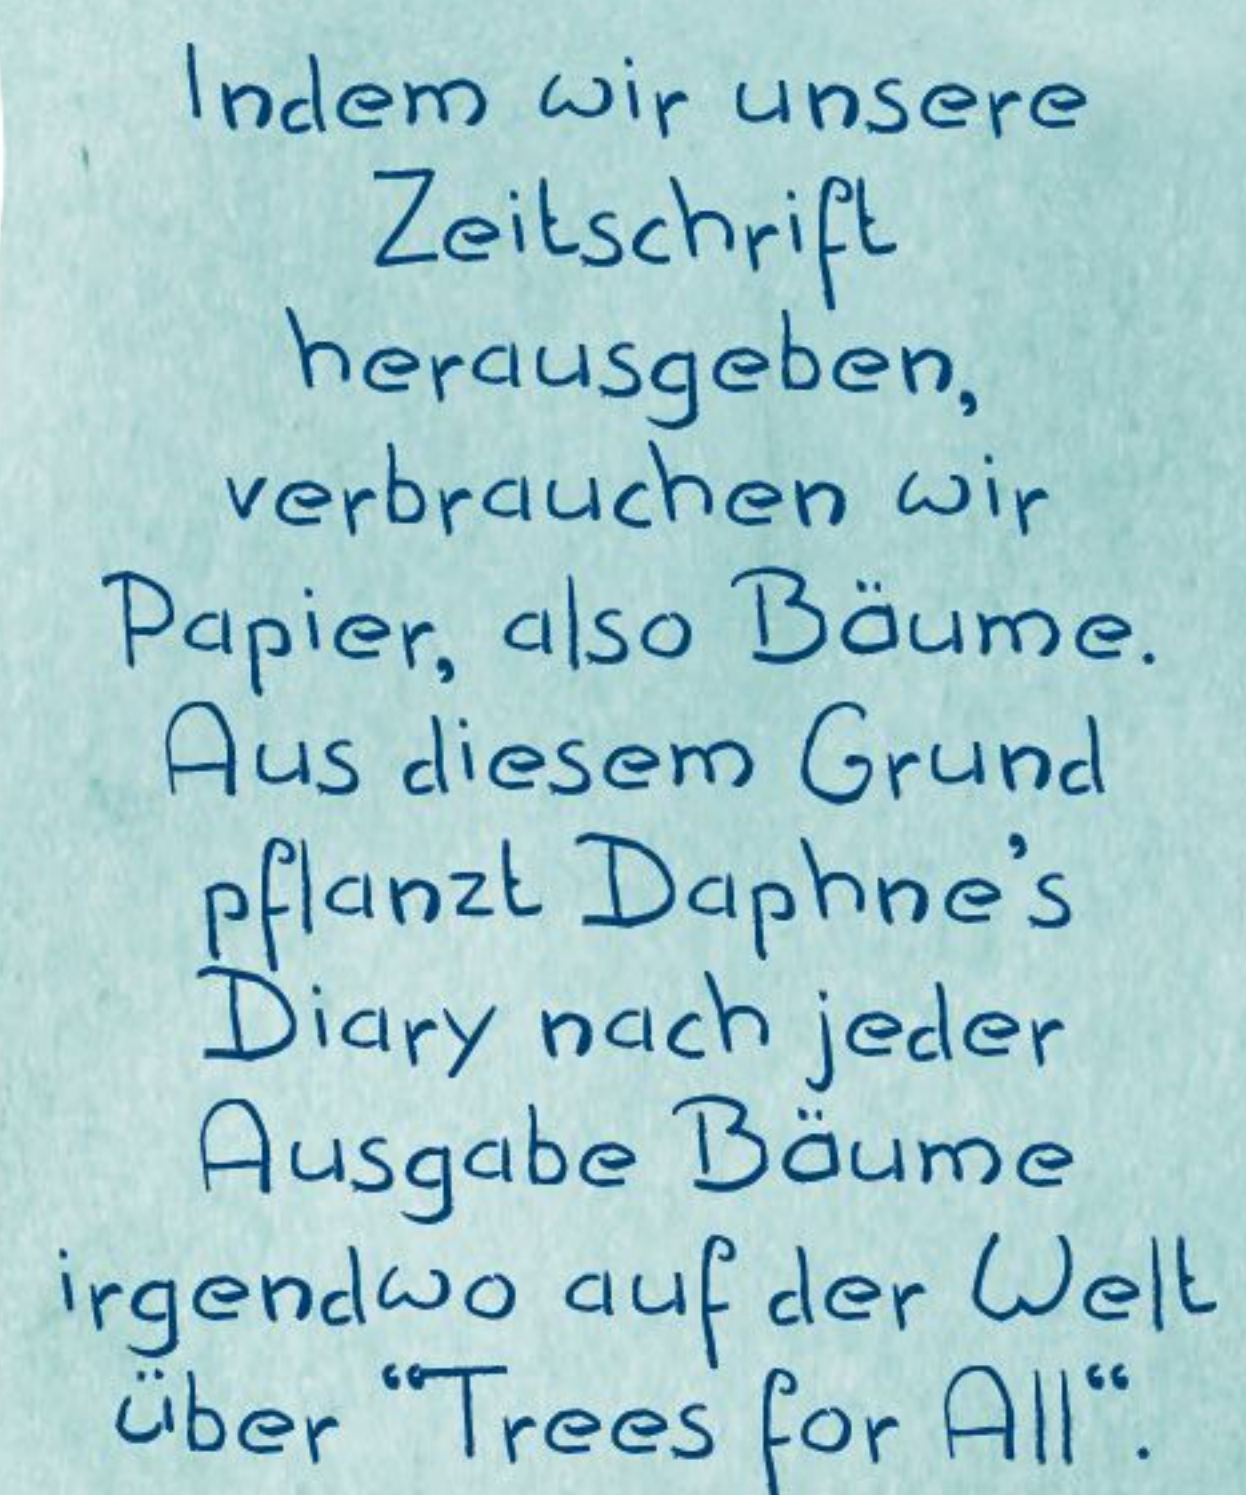 Indem wir unsere
Zeitschrift
herausgeben,
verbrauchen wir
Papier, also Bäume.
Aus diesem Grund
pflanzt Daphne's
Diary nach jeder
Ausgabe Bäume
irgendwo auf der Welt
über “Trees for All“.